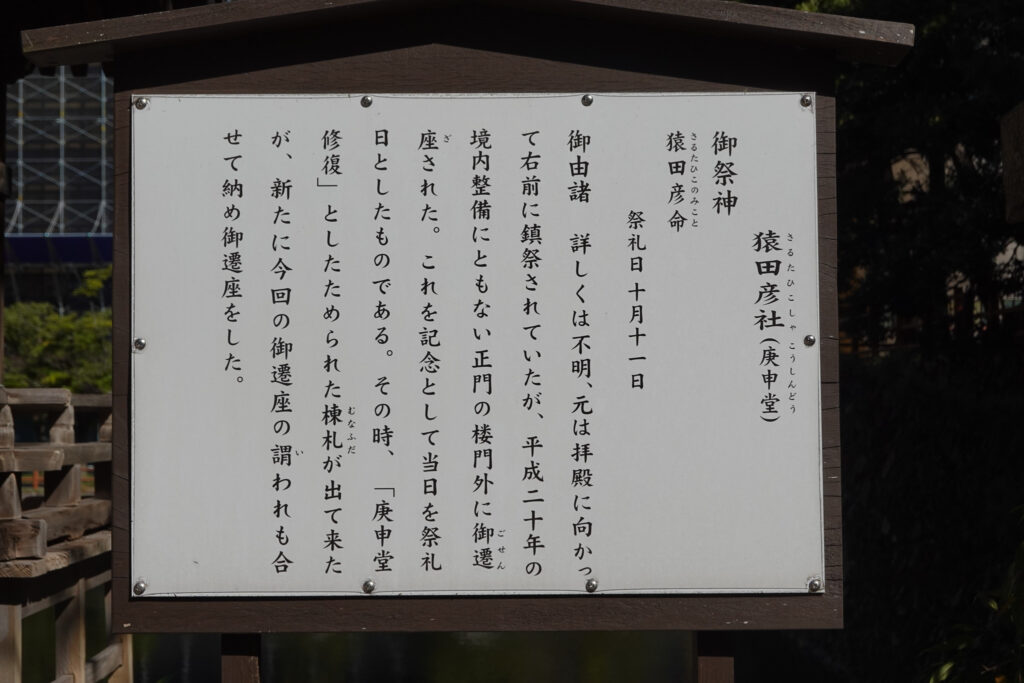 猿田彦社(庚申堂)
さるたひこしゃ こうしんどう
御祭神
猿田彦命
さるたひこのみこと
祭礼日十月十一日
御由諸 詳しくは不明、元は拝殿に向かっ
て右前に鎮祭されていたが、平成二十年の
境内整備にともない正門の楼門外に御遷
ごせん
座された。これを記念として当日を祭礼
ざ
日としたものである。その時、「庚申堂
修復」としたためられた棟札が出て来た
むなふだ
が、新たに今回の御遷座の謂われも合
い
せて納め御遷座をした。